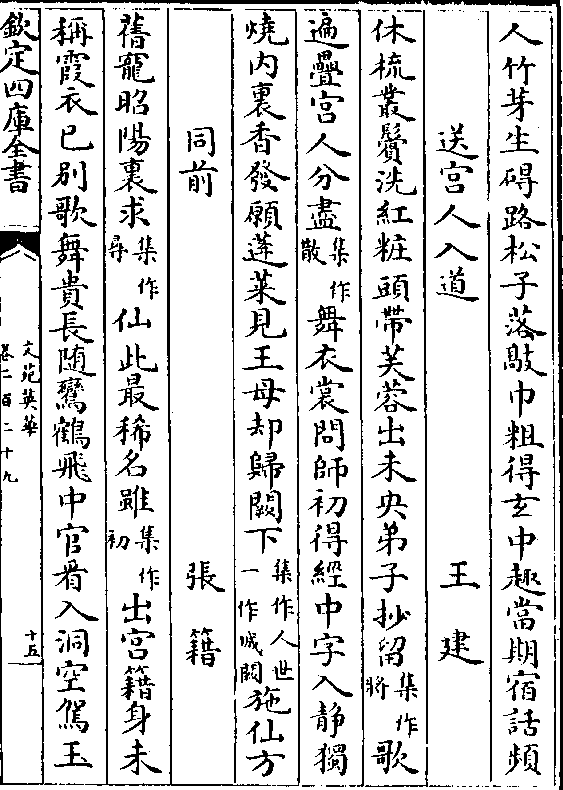 人竹芽生碍路松子落敲巾粗得玄中趣當期宿話頻
送宫人入道　王建
休梳叢鬢洗紅粧頭帶芙蓉出未央弟子抄留集作將歌
遍疊宫人分盡集作散舞衣裳問師初得經中字入静獨
燒内裏香發願蓬萊見王母却歸闕下集作人世一作城闕施仙方
同前　張籍
舊寵昭陽裏求集作尋仙此最稀名雖集作初出宫籍身未
稱霞衣已别歌舞貴長随鸞鶴飛中官看入洞空駕玉
欽定四庫全書
文苑英華
卷二百二十九
十五